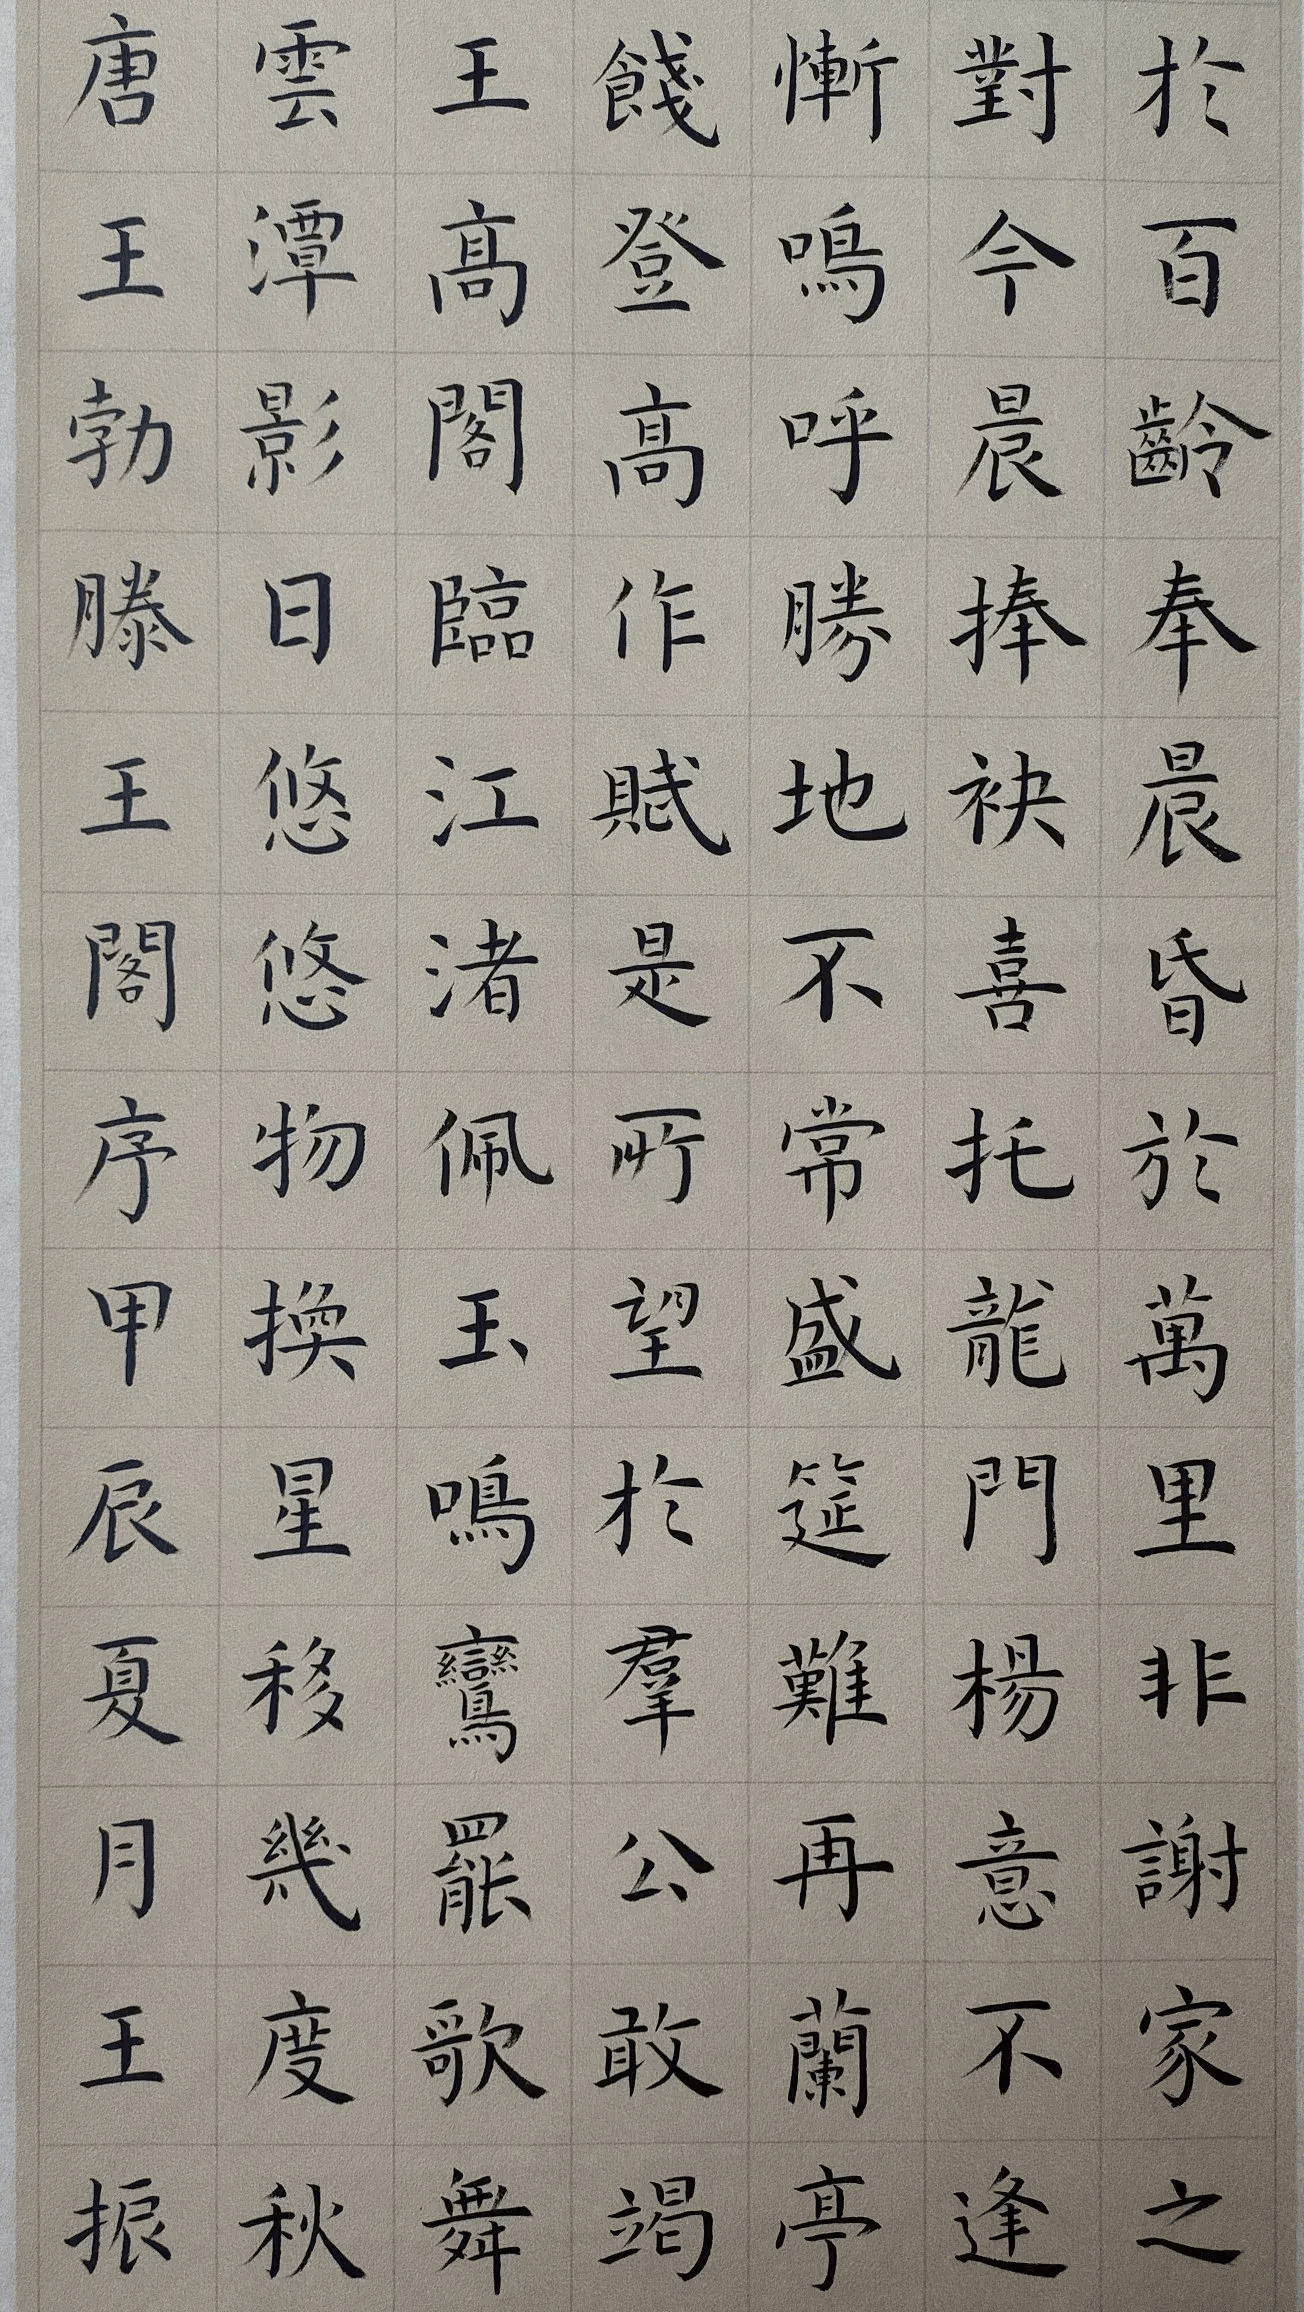 於百齡奉晨昏於萬里非謝家之
對今晨捧袂喜托龍門楊意不逢
慚鳴呼勝地不常盛筵難再蘭亭
餞登高作賦是所望於羣公敢竭
王高閣臨江渚佩玉鳴鸞罷歌舞
雲潭影日悠悠物換星移幾度秋
唐王勃滕王閣序甲辰夏月王振